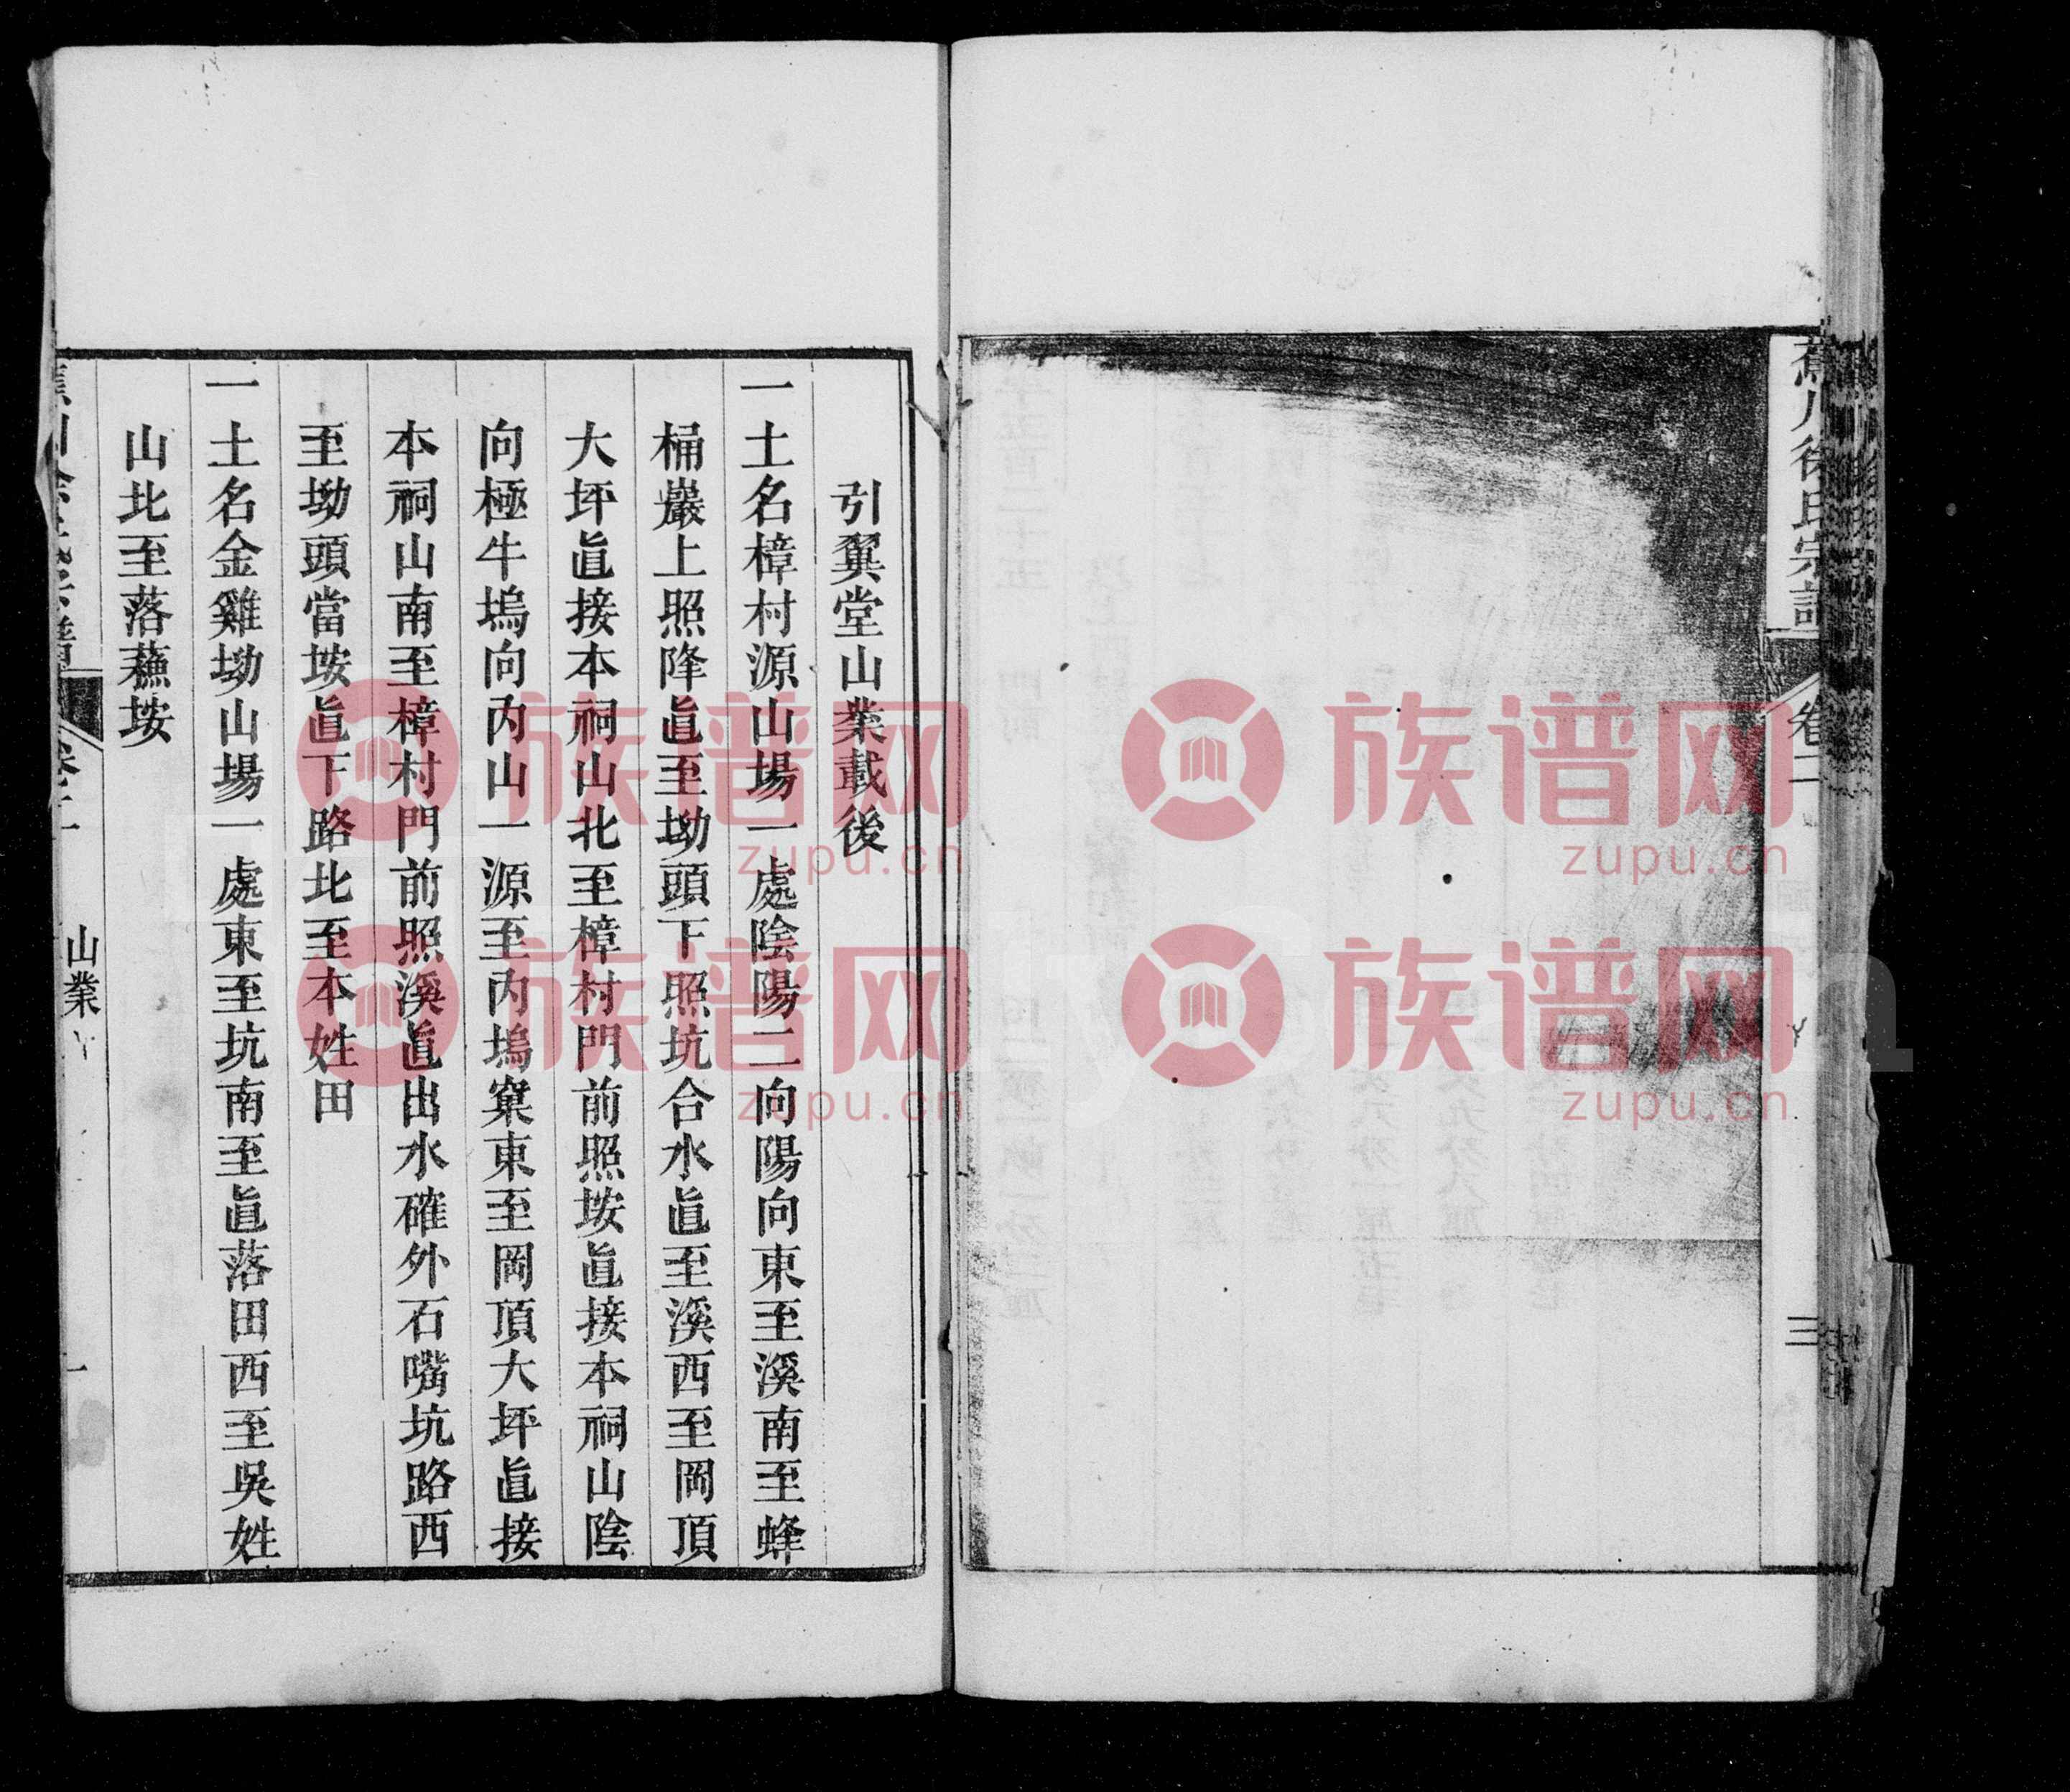 蕉川徐氏宗譜
卷二
三
引翼堂山業載後
一土名樟村源山場一處陰陽二向陽向東至溪南至蜂
桶巖上照降直至坳頭下照坑合水直至溪西至岡頂
大坪直接本祠山北至樟村門前照垵直接本祠山陰
向極牛塢向內山一源至內塢窠東至岡頂大坪直接
本祠山南至樟村門前照溪直出水確外石嘴坑路西
至坳頭當垵直下路北至本姓田
一土名金雞坳山場一處東至坑南至直落田西至吳姓
山北至落蘓垵
山業
一
族谱网
zupu.cn
族谱网
zupu.cn
族谱网
zupu.cn
族谱网
zupu.cn